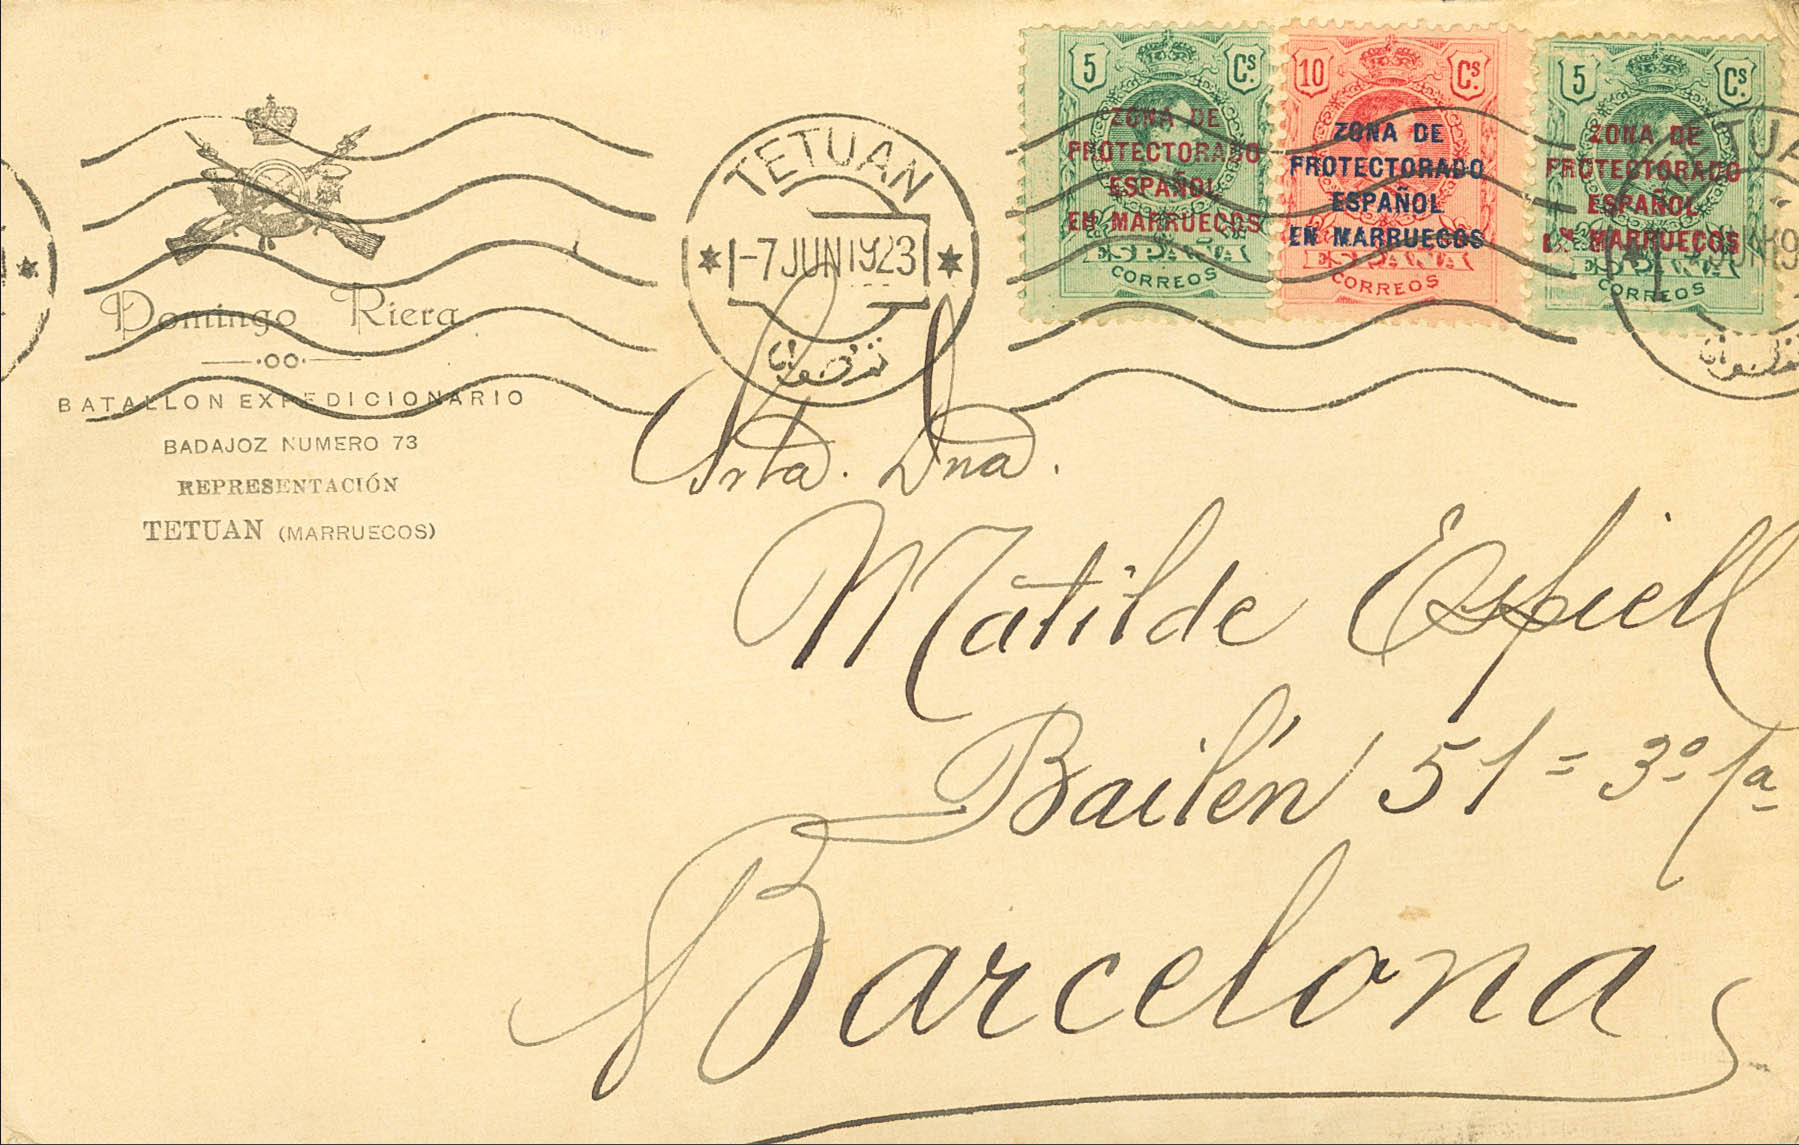 Domingo Riera
BATALLON EXPEDICIONARIO
BADAJOZ NUMERO 73
REPRESENTACIÓN
TETUAN (MARRUECOS)
TETUAN
-7 JUN 1923
تطوان
5 Cs.
ZONA DE
PROTECTORADO
ESPAÑOL
EN MARRUECOS
ESPAÑA
CORREOS
10 Cs.
ZONA DE
PROTECTORADO
ESPAÑOL
EN MARRUECOS
ESPAÑA
CORREOS
5 Cs.
ZONA DE
PROTECTORADO
ESPAÑOL
EN MARRUECOS
ESPAÑA
CORREOS
Srta. Dña.
Matilde Espiell
Bailén 51=3º 1ª
Barcelona